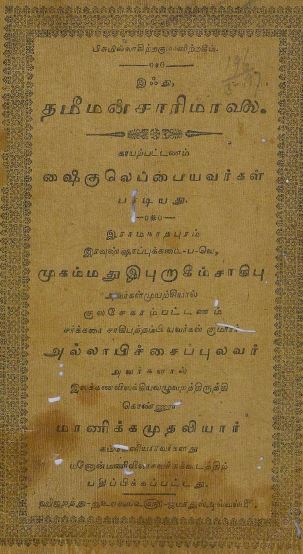 பிசுமில்லாகிற்றகுமானிற்றகீம்.
இஃது,
தமீமன்சாரிமாலை.
காயற்பட்டணம்
ஷைகுலெப்பையவர்கள்
பாடியது.
இராமநாதபுரம்
முகம்மதுஇபுறாகீம்சாகிபு
அவர்கள்முயற்சியால்
குலசேகரம்பட்டணம்
சர்க்கரை சாகிபுத்தம்பியவர்கள் குமாரர்
அல்லாபிச்சைப்புலவர்
அவர்களால்
கொண்ணூர்
மாணிக்கமுதலியார்
பதிப்பிக்கப்பட்டது.